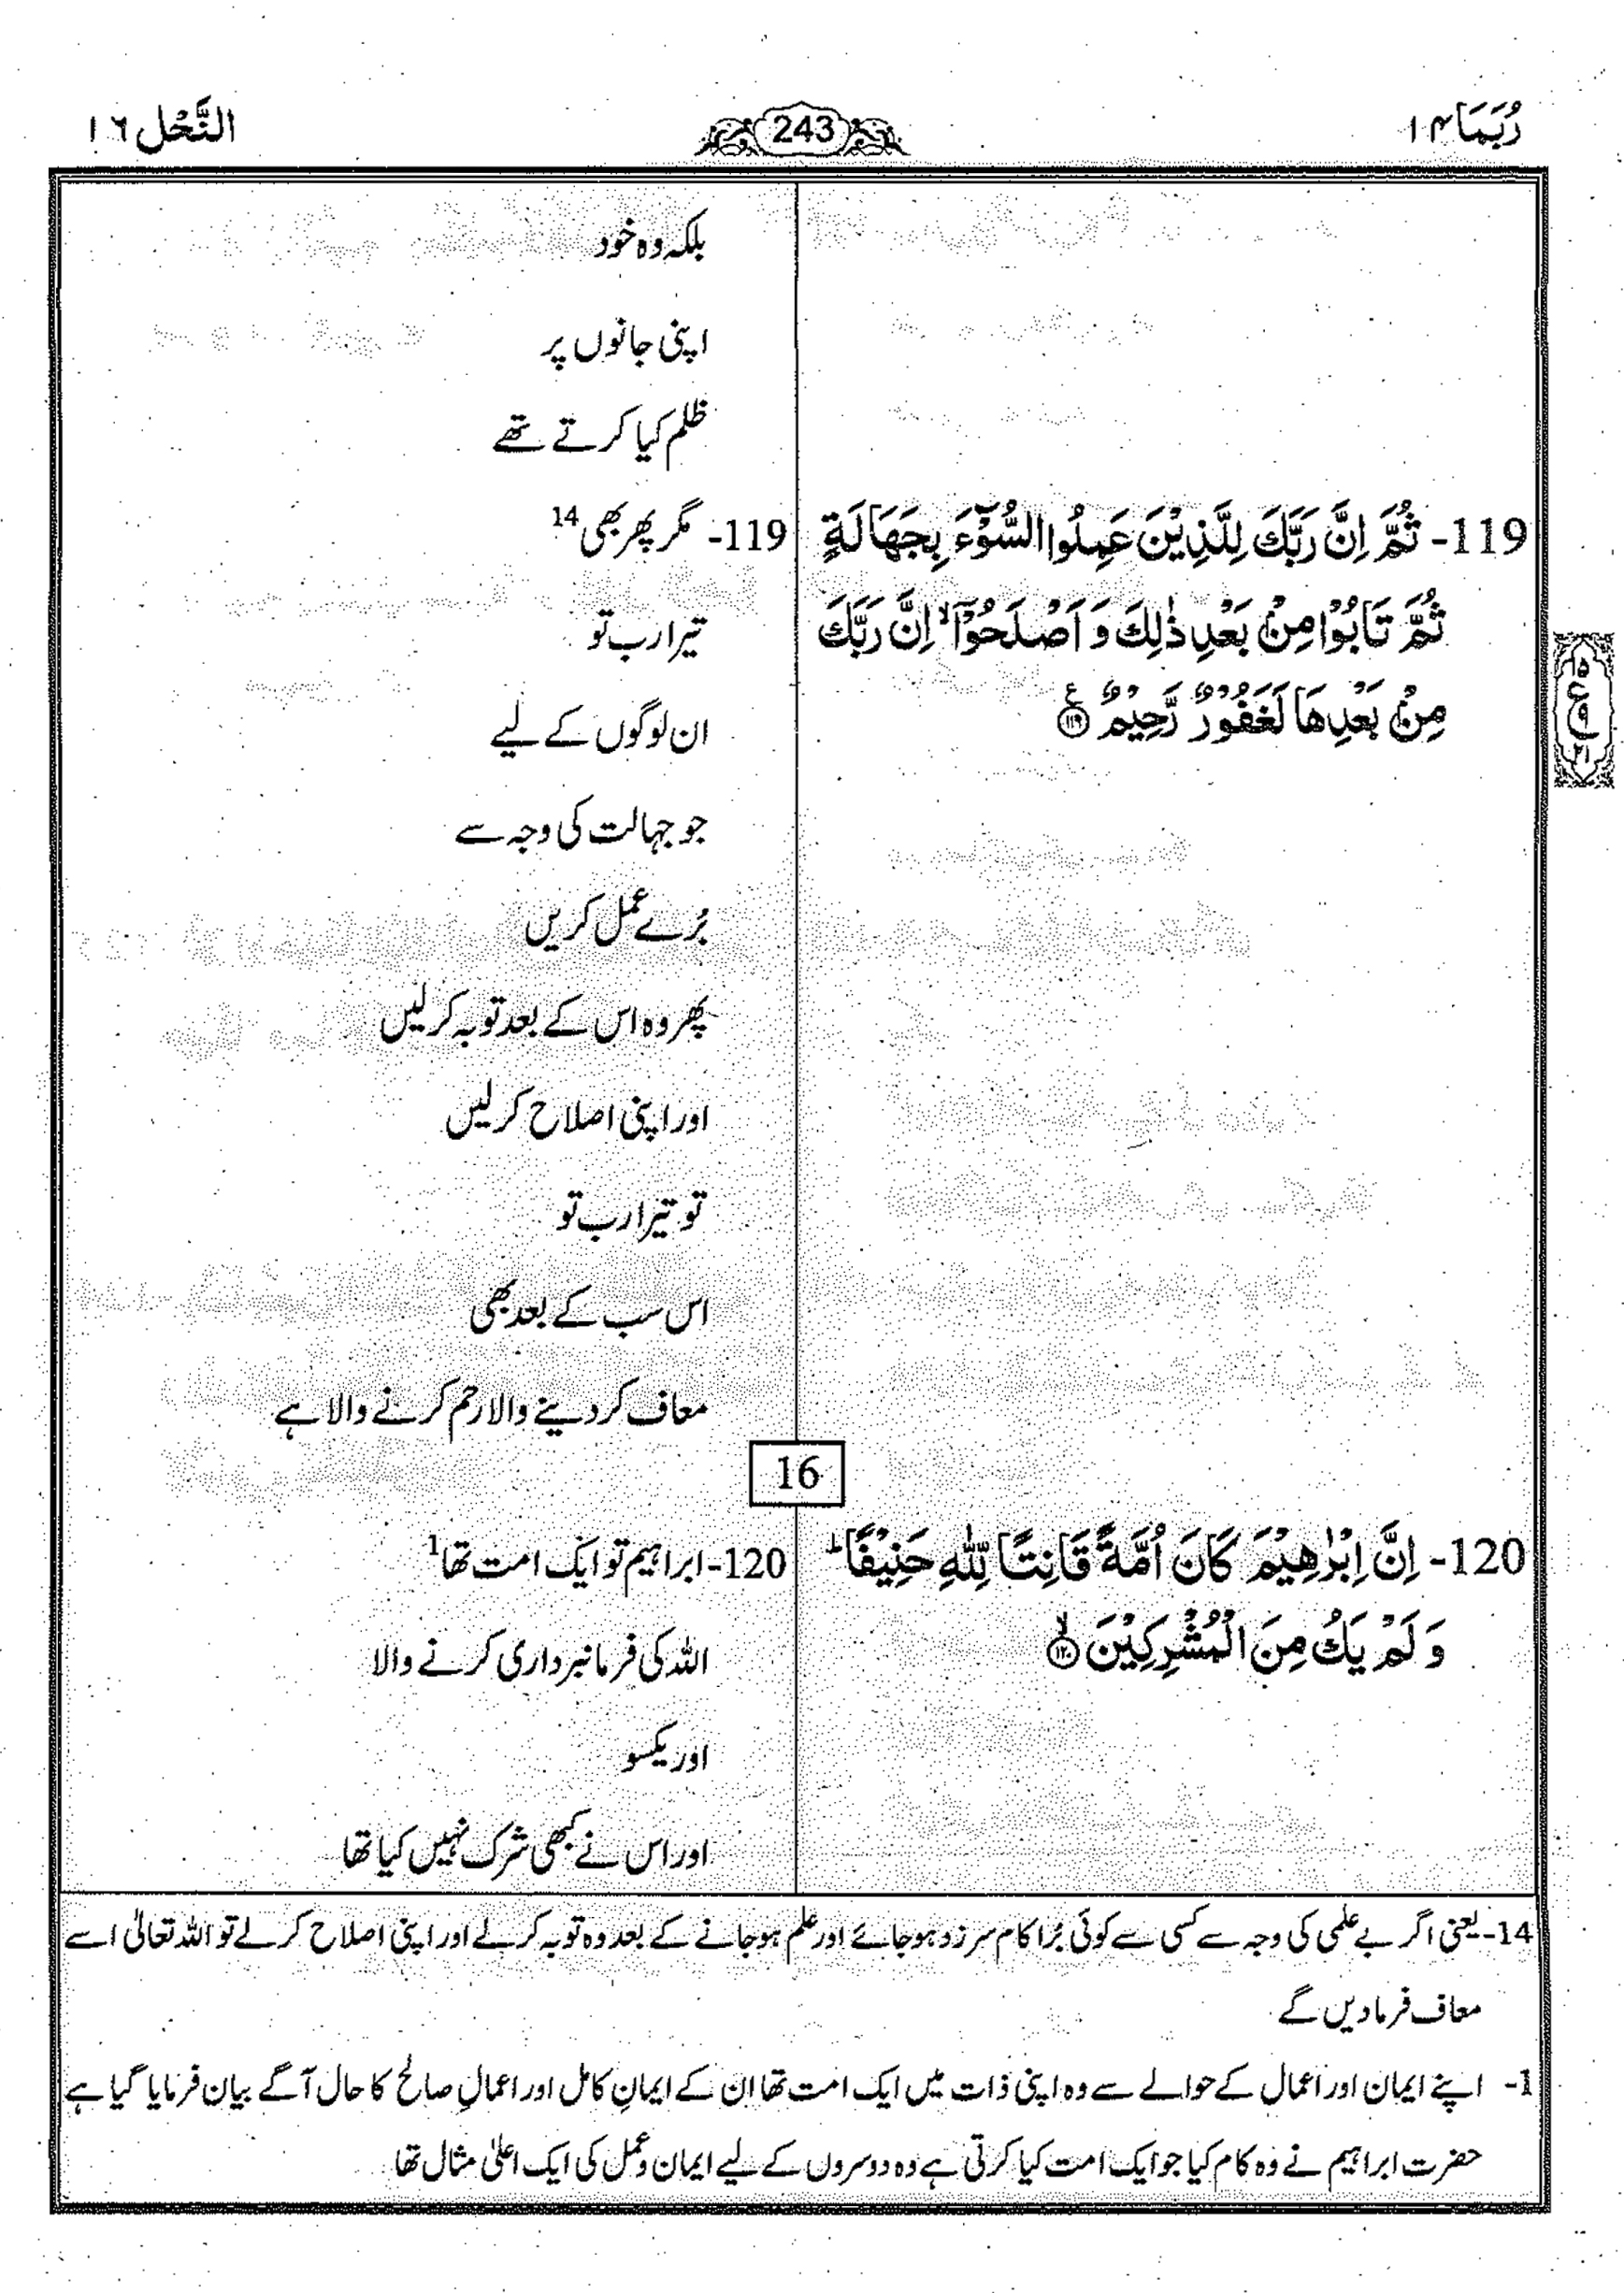 رُبَمَا ١٤
243
النَّحْل ١٦
بلکہ وہ خود
اپنی جانوں پر
ظلم کیا کرتے تھے
119- ثُمَّ اِنَّ رَبَّكَ لِلَّذِيْنَ عَمِلُوا السُّوْٓءَ بِجَهَالَةٍ
ثُمَّ تَابُوْا مِنْۢ بَعْدِ ذٰلِكَ وَ اَصْلَحُوْٓا ۙ اِنَّ رَبَّكَ
مِنْۢ بَعْدِهَا لَغَفُوْرٌ رَّحِيْمٌ ࣖ ١١٩
119- مگر پھر بھی 14
تیرا رب تو
ان لوگوں کے لیے
جو جہالت کی وجہ سے
بُرے عمل کریں
پھر وہ اس کے بعد توبہ کر لیں
اور اپنی اصلاح کر لیں
تو تیرا رب تو
اس سب کے بعد بھی
معاف کر دینے والا رحم کرنے والا ہے
١٥
ع
٩
٢١
16
120- اِنَّ اِبْرٰهِيْمَ كَانَ اُمَّةً قَانِتًا لِّلّٰهِ حَنِيْفًا ؕ
وَ لَمْ يَكُ مِنَ الْمُشْرِكِيْنَ ۙ ١٢٠
120- ابراہیم تو ایک امت تھا 1
اللہ کی فرمانبرداری کرنے والا
اور یکسو
اور اس نے کبھی شرک نہیں کیا تھا
14- یعنی اگر بے علمی کی وجہ سے کسی سے کوئی بُرا کام سرزد ہو جائے اور علم ہو جانے کے بعد وہ توبہ کر لے اور اپنی اصلاح کر لے تو اللہ تعالیٰ اسے
معاف فرما دیں گے
1- اپنے ایمان اور اعمال کے حوالے سے وہ اپنی ذات میں ایک امت تھا ان کے ایمانِ کامل اور اعمالِ صالح کا حال آگے بیان فرمایا گیا ہے
حضرت ابراہیم نے وہ کام کیا جو ایک امت کیا کرتی ہے وہ دوسروں کے لیے ایمان و عمل کی ایک اعلیٰ مثال تھا